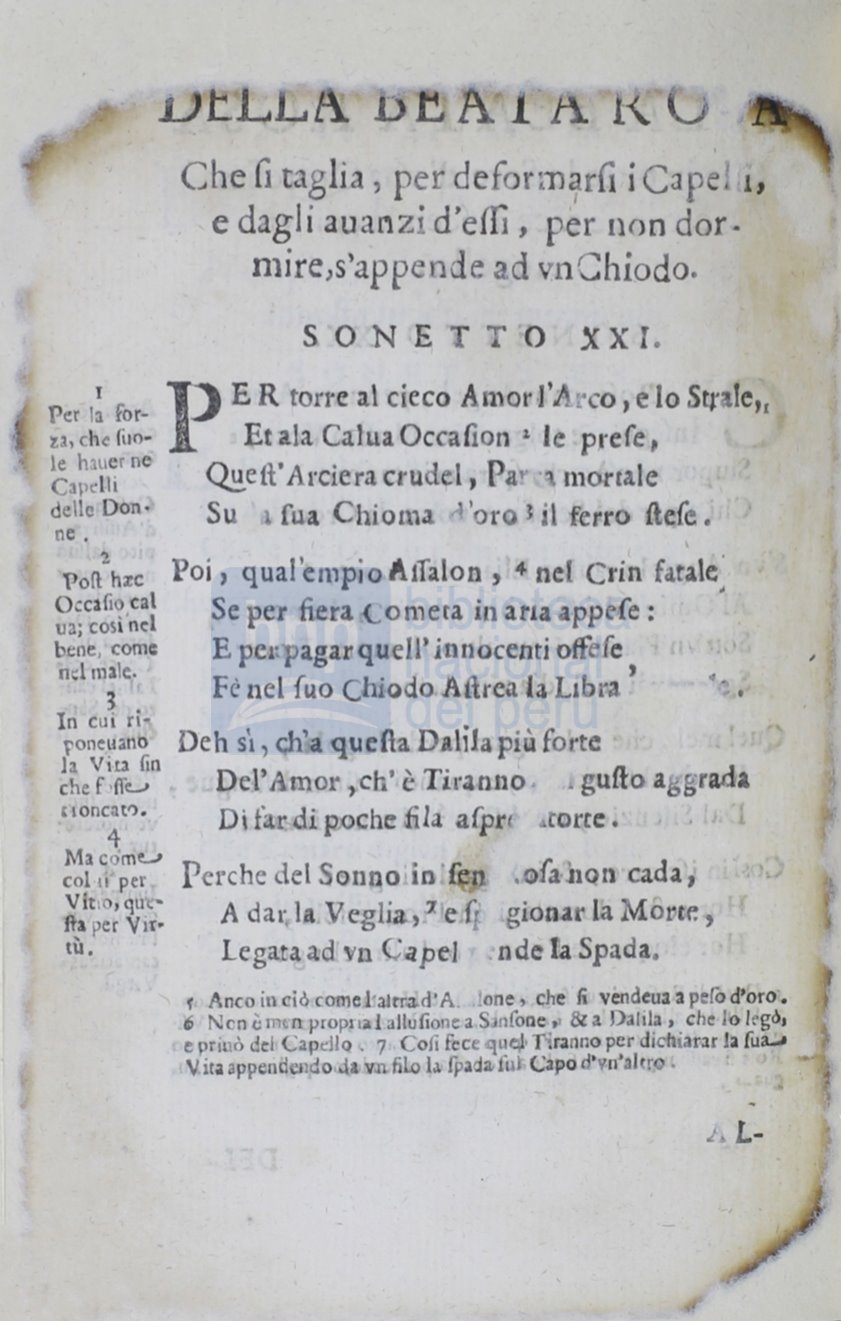 DELLA BEATA ROSA
Che ſi taglia, per deformarſi i Capelli,
e dagli auanzi d'eſſi, per non dor-
mire, s'appende ad vn Chiodo.
SONETTO XXI.
PER torre al cieco Amor l'Arco, e lo Strale,
Et ala Calua Occaſion 2 le preſe,
Queſt' Arciera crudel, Parca mortale
Su la ſua Chioma d'oro 3 il ferro ſteſe.
Poi, qual'empio Aſſalon, 4 nel Crin fatale
Se per fiera Cometa in aria appeſe:
E per pagar quell' innocenti offeſe
Fè nel ſuo Chiodo Aſtrea la Libra
Deh sì, ch'a queſta Dalila più forte
Del'Amor, ch' è Tiranno guſto aggrada
Di far di poche fila aſpre torte.
Perche del Sonno in ſen oſa non cada,
A dar la Veglia, 7 e gionar la Morte,
Legata ad vn Capel la Spada.
1
Per la for-
za, che ſuo-
le hauer ne
Capelli
delle Don-
ne.
2
Poſt hæc
Occaſio cal
ua; così nel
bene, come
nel male.
3
In cui ri-
poneuano
la Vita ſin
che foſſe
troncato.
4
Ma come
colui per
Vitio, que-
ſta per Vir-
tù.
5 Anco in ciò come l'altra d'Aſſalone, che ſi vendeua a peſo d'oro.
6 Non è men propria l'alluſione a Sanſone, & a Dalila, che lo legò,
e priuò del Capello. 7 Coſi fece quel Tiranno per dichiarar la ſua
Vita appendendo da vn filo la ſpada ſul Capo d'vn'altro.
AL-
biblioteca
nacional
del perú
bnp